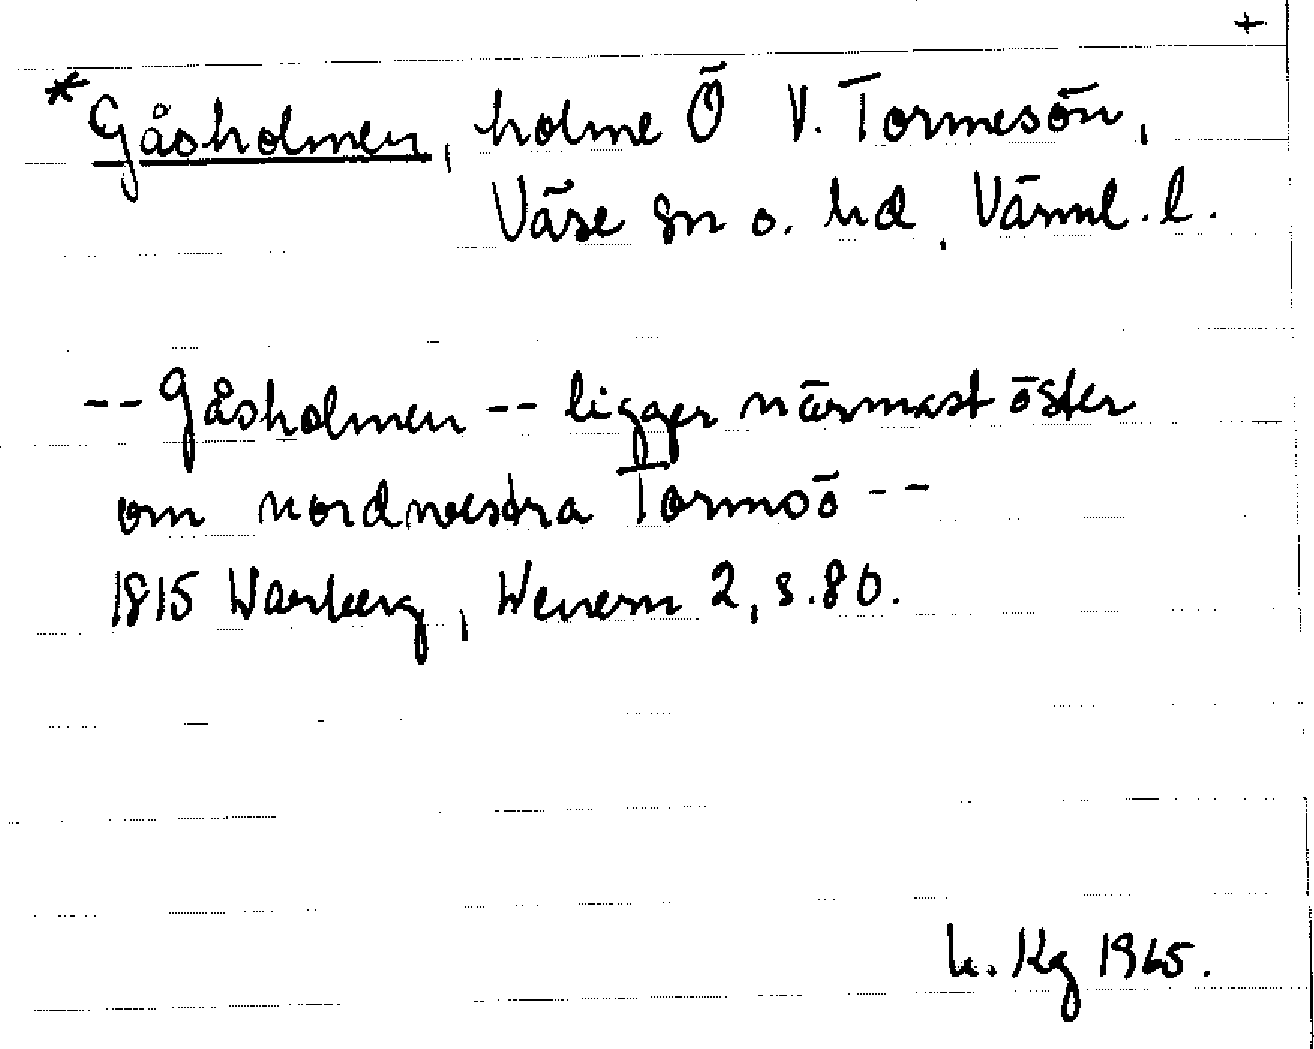 +
*Gåsholmen, holme Ö V. Tormesön,
Väse sn o. hd, Värml. l.
-- Gåsholmen -- ligger närmast öster
om nordvestra Tormsö --
1815 Warberg, Wenern 2, s. 80.
h. Kg 1965.